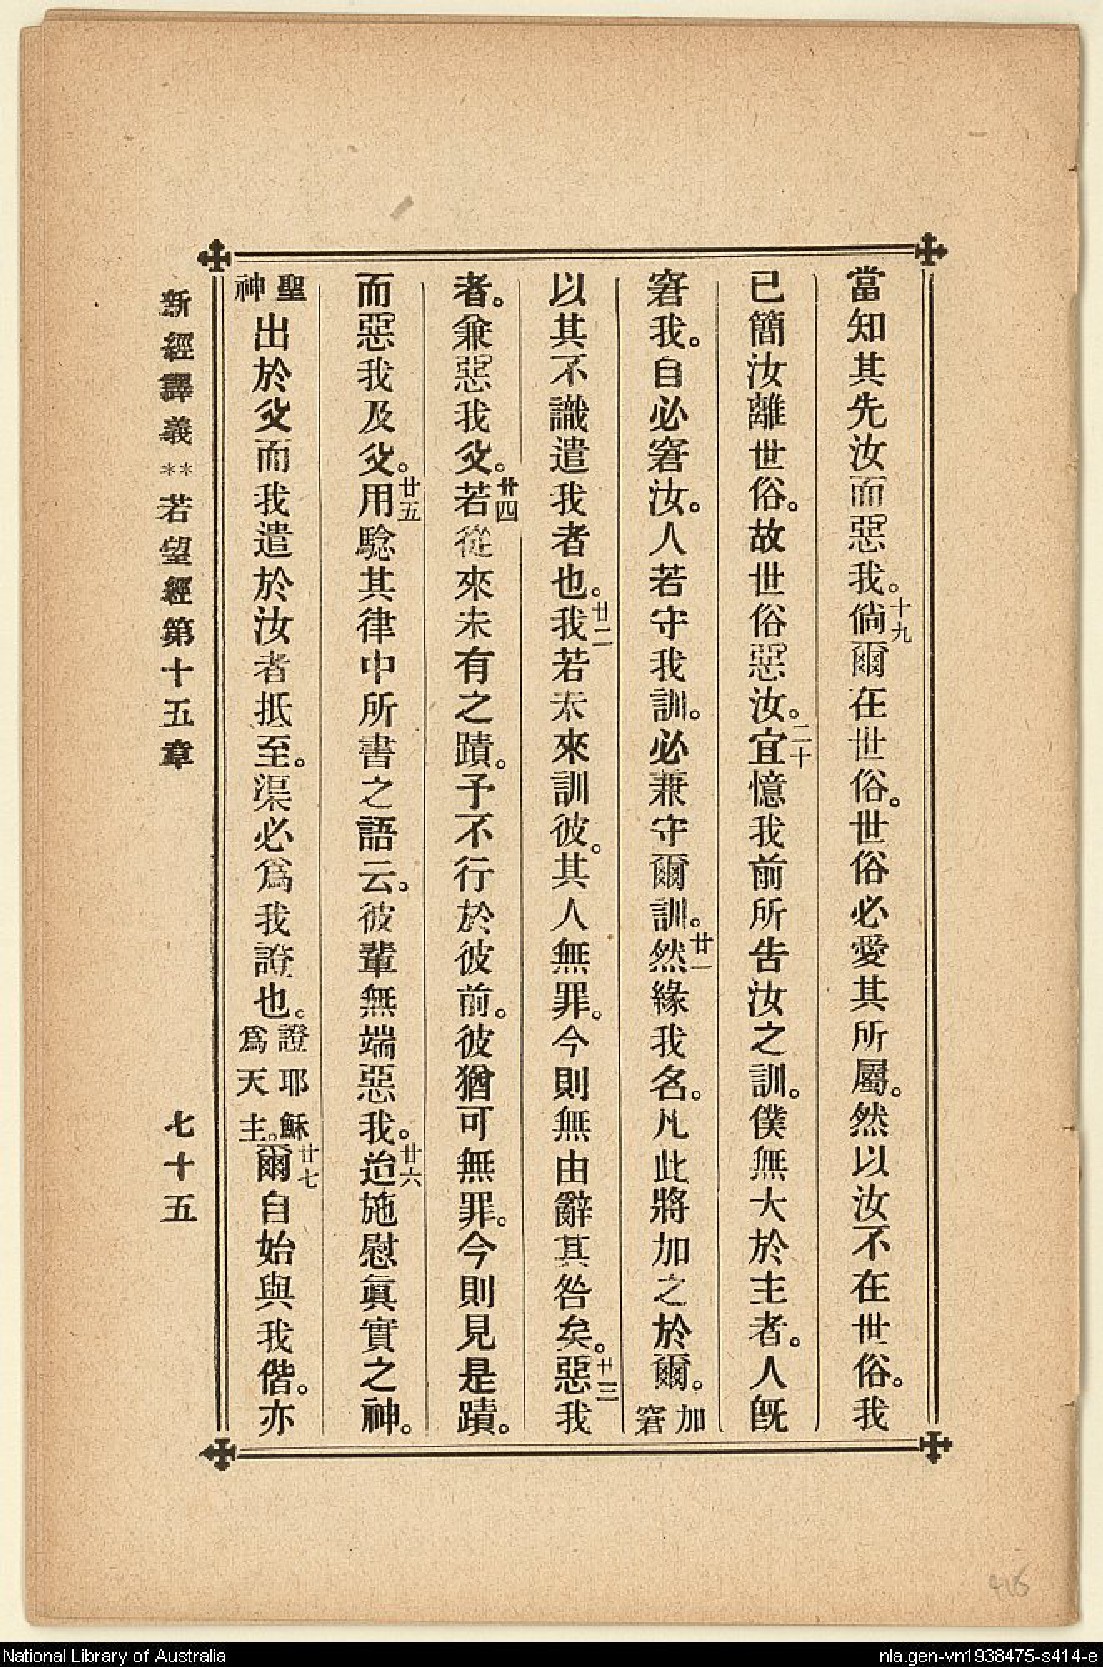 當知其先汝而惡我。十九倘爾在世俗。世俗必愛其所屬。然以汝不在世俗。我
已簡汝離世俗。故世俗惡汝。二十宜憶我前所告汝之訓。僕無大於主者。人旣
窘我。自必窘汝。人若守我訓。必兼守爾訓。廿一然緣我名。凡此將加之於爾。加窘
以其不識遣我者也。廿二我若未來訓彼。其人無罪。今則無由辭其咎矣。廿三惡我
者。兼惡我父。廿四若從來未有之蹟。予不行於彼前。彼猶可無罪。今則見是蹟。
而惡我及父。廿五用騐其律中所書之語云。彼輩無端惡我。廿六迨施慰眞實之神。
聖神出於父而我遣於汝者抵至。渠必爲我證也。證耶穌爲天主。廿七爾自始與我偕。亦
新經譯義**若望經第十五章 七十五
416
National Library of Australia
nla.gen-vn1938475-s414-e